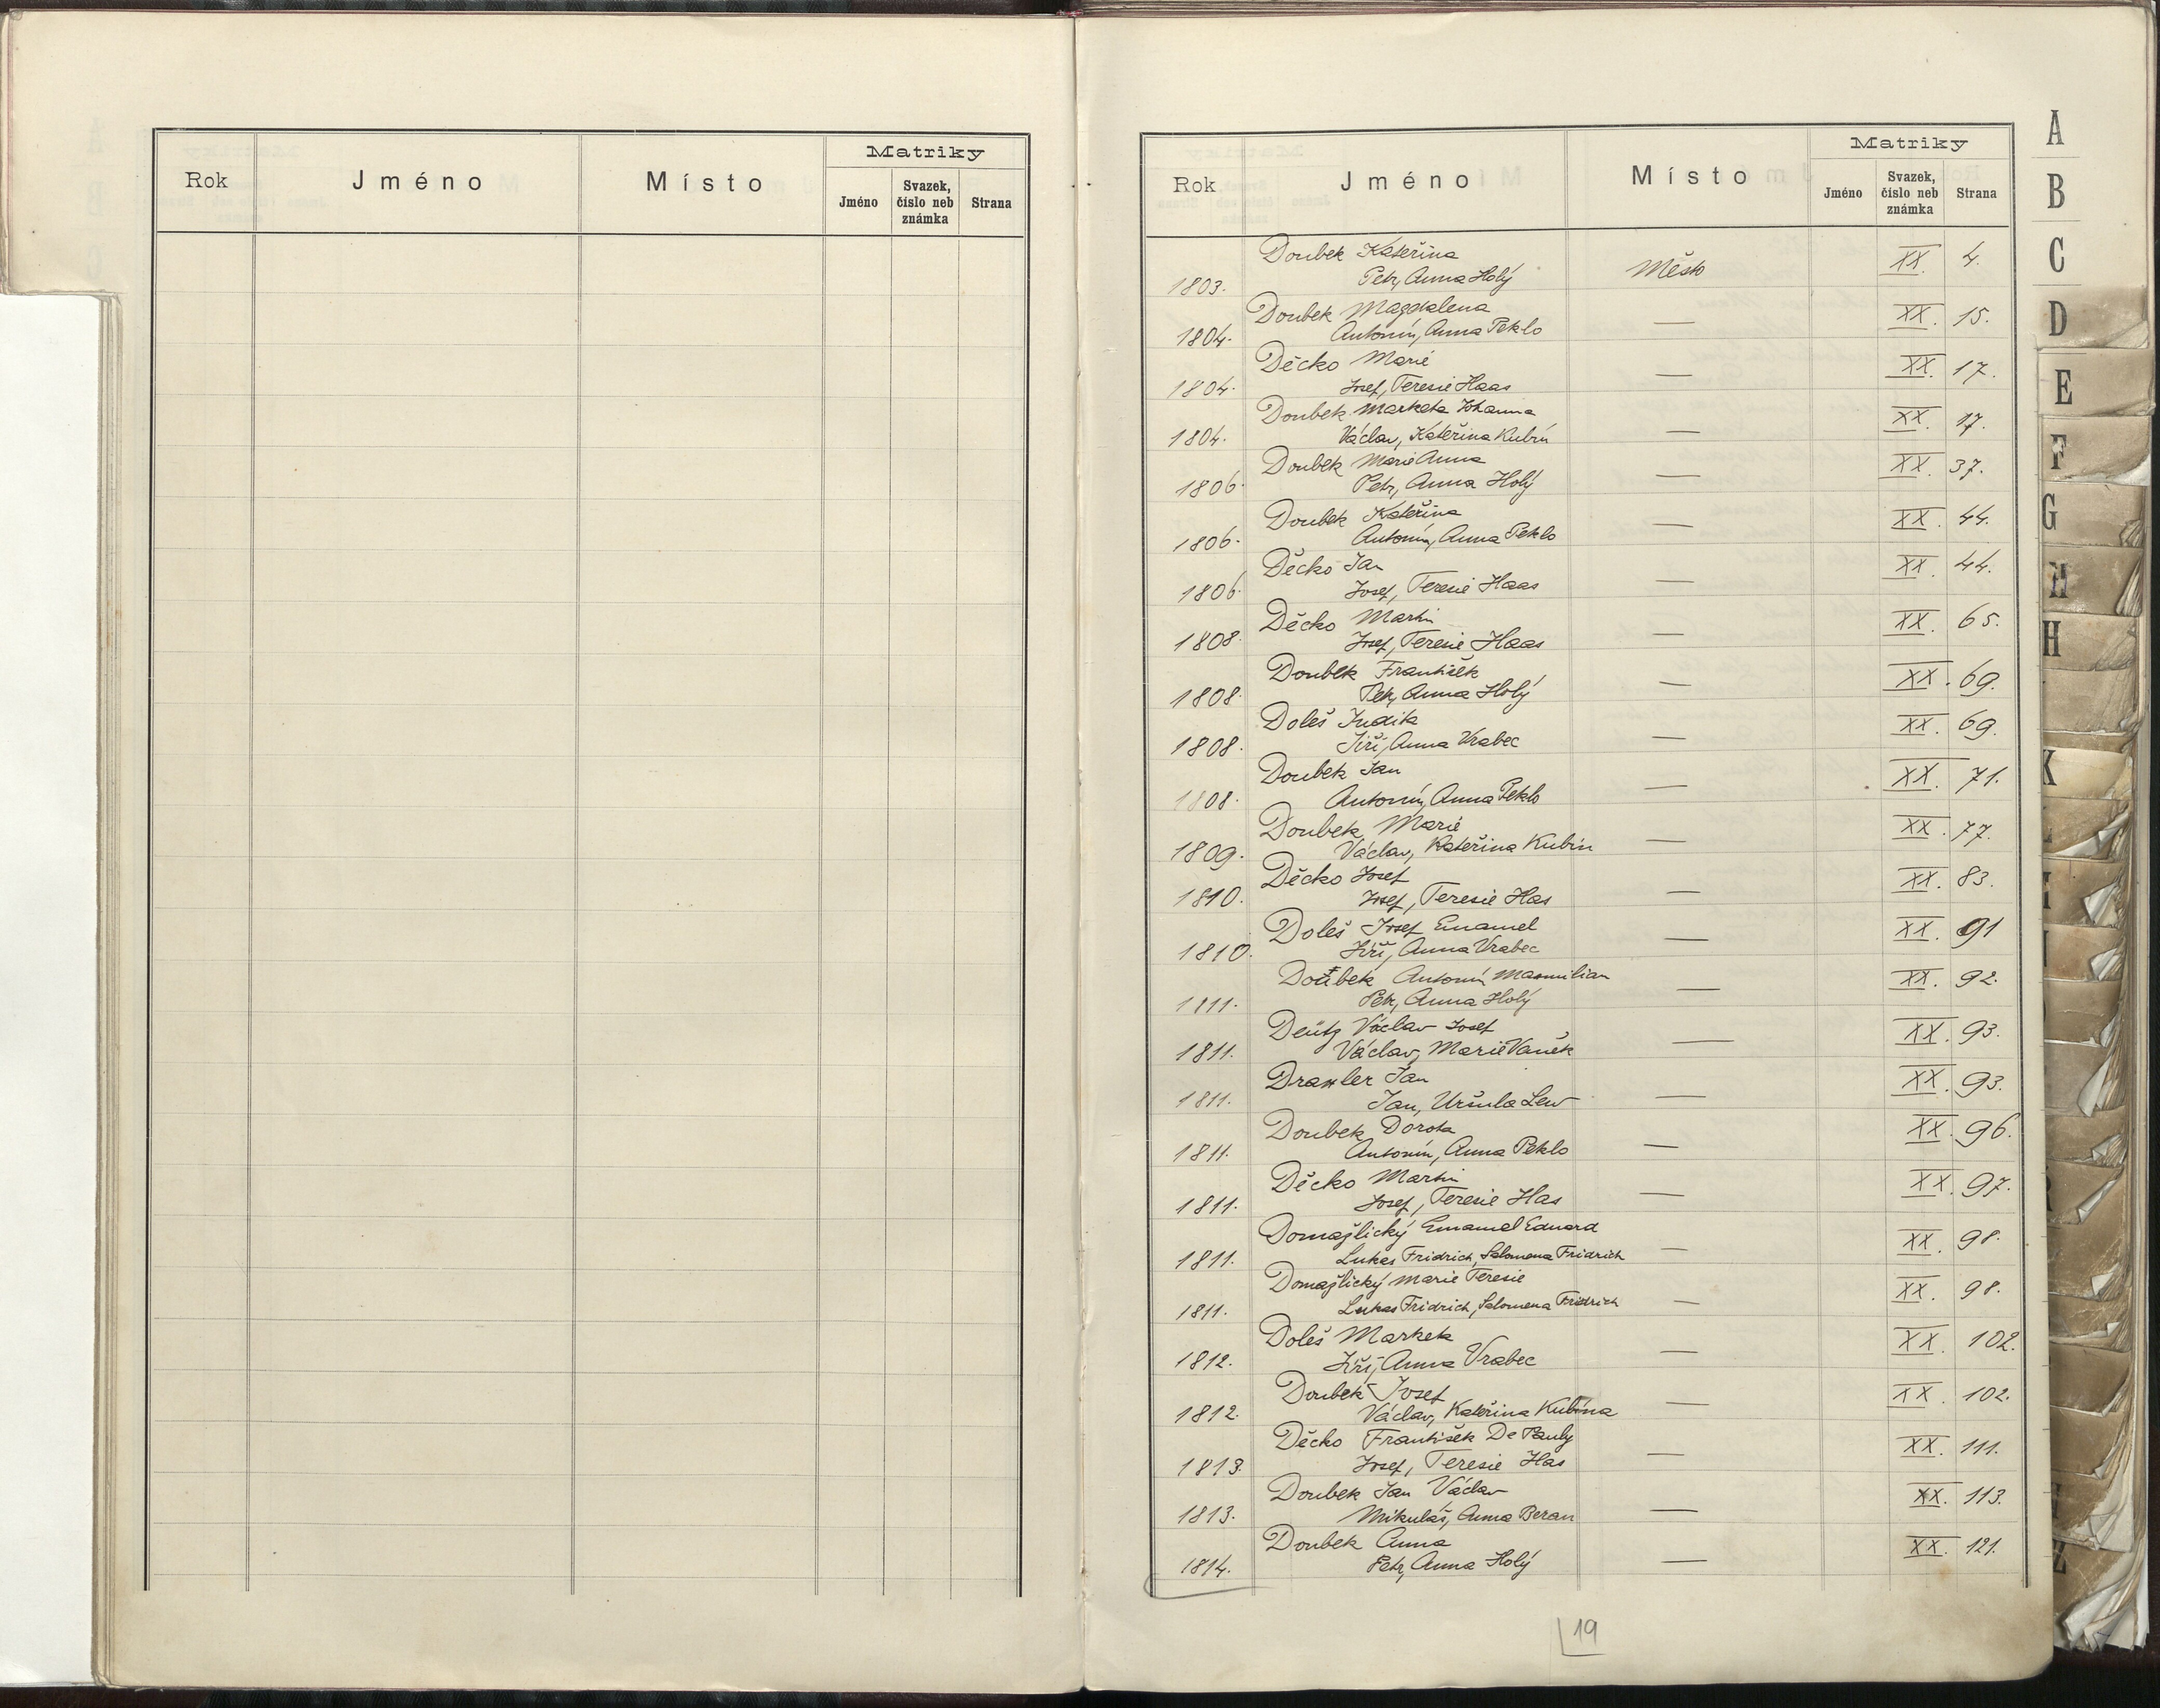 Rok Jméno Místo Matriky
Jméno Svazek, číslo neb známka Strana
Rok Jméno Místo Matriky
Jméno Svazek, číslo neb známka Strana
A
B
C
D
E
F
G
H
K
Doubek Kateřina
1803. Petr, Anna Holý Město XX. 4.
Doubek Magdalena
1804. Antonín, Anna Peklo — XX. 15.
Děcko Marie
1804. Josef, Teresie Haas — XX. 17.
Doubek Marketa Johanna
1804. Václav, Kateřina Kubín — XX. 17.
Doubek Marie Anna
1806. Petr, Anna Holý — XX. 37.
Doubek Kateřina
1806. Antonín, Anna Peklo — XX. 44.
Děcko Jan
1806. Josef, Teresie Haas — XX. 44.
Děcko Martin
1808. Josef, Teresie Haas — XX. 65.
Doubek František
1808. Petr, Anna Holý — XX. 69.
Doleš Judik
1808. Jiří, Anna Vrabec — XX. 69.
Doubek Jan
1808. Antonín, Anna Peklo — XX. 71.
Doubek Marie
1809. Václav, Kateřina Kubín — XX. 77.
Děcko Josef
1810. Josef, Teresie Has — XX. 83.
Doleš Josef Emanuel
1810. Jiří, Anna Vrabec — XX. 91
Doubek Antonín Maxmilian
1811. Petr, Anna Holý — XX. 92.
Deutz Václav Josef
1811. Václav, Marie Vaněk — XX. 93.
Draxler Jan
1811. Jan, Uršula Lew — XX. 93.
Doubek Dorota
1811. Antonín, Anna Peklo — XX. 96.
Děcko Martin
1811. Josef, Teresie Has — XX. 97.
Domažlický Emanuel Eduard
1811. Lukas Fridrich, Salomena Fridrich — XX. 98.
Domažlický Marie Teresie
1811. Lukas Fridrich, Salomena Fridrich — XX. 98.
Doleš Market
1812. Jiří, Anna Vrabec — XX. 102.
Doubek Josef
1812. Václav, Kateřina Kubína — XX. 102.
Děcko František De Pauly
1813. Josef, Teresie Has — XX. 111.
Doubek Jan Václav
1813. Mikuláš, Anna Beran — XX. 113.
Doubek Anna
1814. Petr, Anna Holý — XX. 121.
19